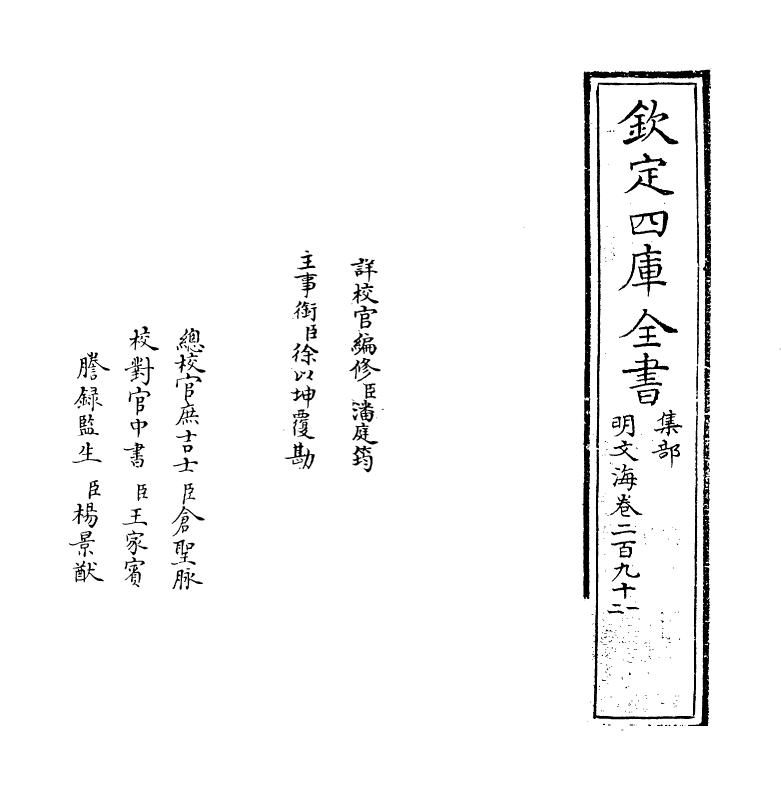 欽定四庫全書
集部
明文海卷二百九十一二
詳校官編修臣潘庭筠
主事銜臣徐以坤覆勘
總校官庶吉士臣倉聖脉
校對官中書臣王家賓
謄録監生臣楊景猷